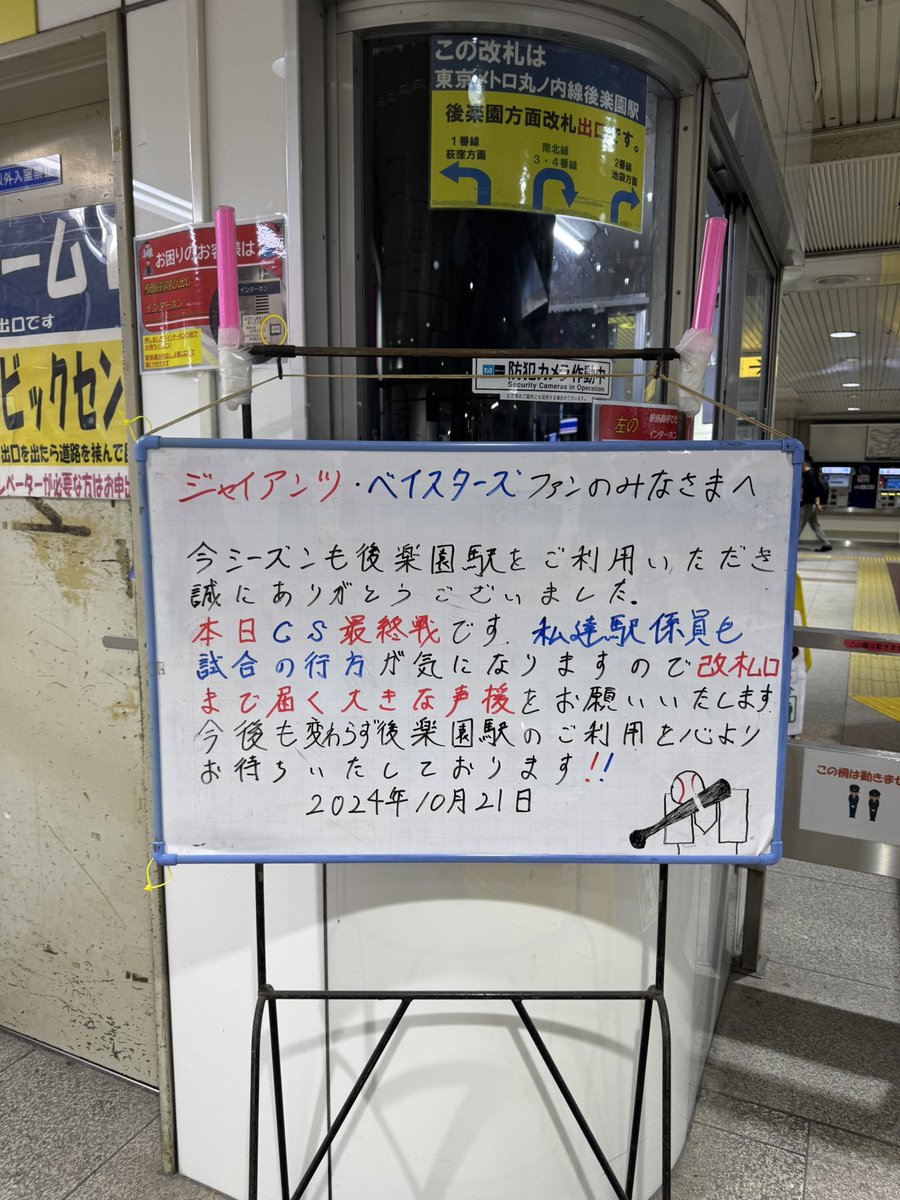 この改札は
東京メトロ丸ノ内線後楽園駅
後楽園方面改札出口です。
1番線
荻窪方面
南北線
3・4番線
2番線
池袋方面
以外入室禁止
お困りのお客様は
インターホン
インターホン
ーム
出口です
ビックセン
出口を出たら道路を挟んで
レベーターが必要な方はお申
防犯カメラ作動中
Security Cameras in Operation
左の
インターホン
ジャイアンツ・ベイスターズファンのみなさまへ
今シーズンも後楽園駅をご利用いただき
誠にありがとうございました。
本日CS最終戦です。私達駅係員も
試合の行方が気になりますので改札口
まで届く大きな声援をお願いいたします
今後も変わらず後楽園駅のご利用を心より
お待ちいたしております!!
2024年10月21日
この柵は動きませ